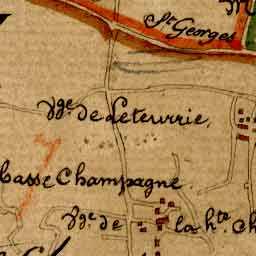 St. Georges
Vge. de Leteurrie.
basse Champagne
Vge. de la hte. Ch